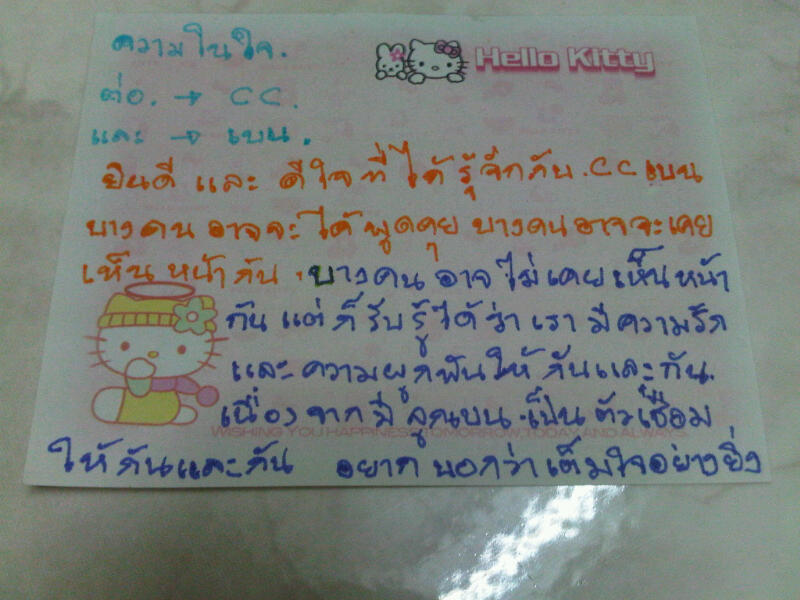 ความในใจ.
Hello Kitty
ต่อ. → CC.
และ → เบน.
ยินดี และ ดีใจที่ได้รู้จักกับ.CC เบน
บางคนอาจจะได้พูดคุย บางคนอาจจะเคย
เห็นหน้ากัน . บางคนอาจไม่เคยเห็นหน้า
กัน แต่ก็รับรู้ได้ว่าเรามีความรัก
และความผูกพันให้กันและกัน.
เนื่องจากมีลูกเบน.เป็นตัวเชื่อม
WISHING YOU HAPPINESS TOMORROW, TODAY AND ALWAYS.
ให้กันและกัน อยากบอกว่าเต็มใจอย่างยิ่ง